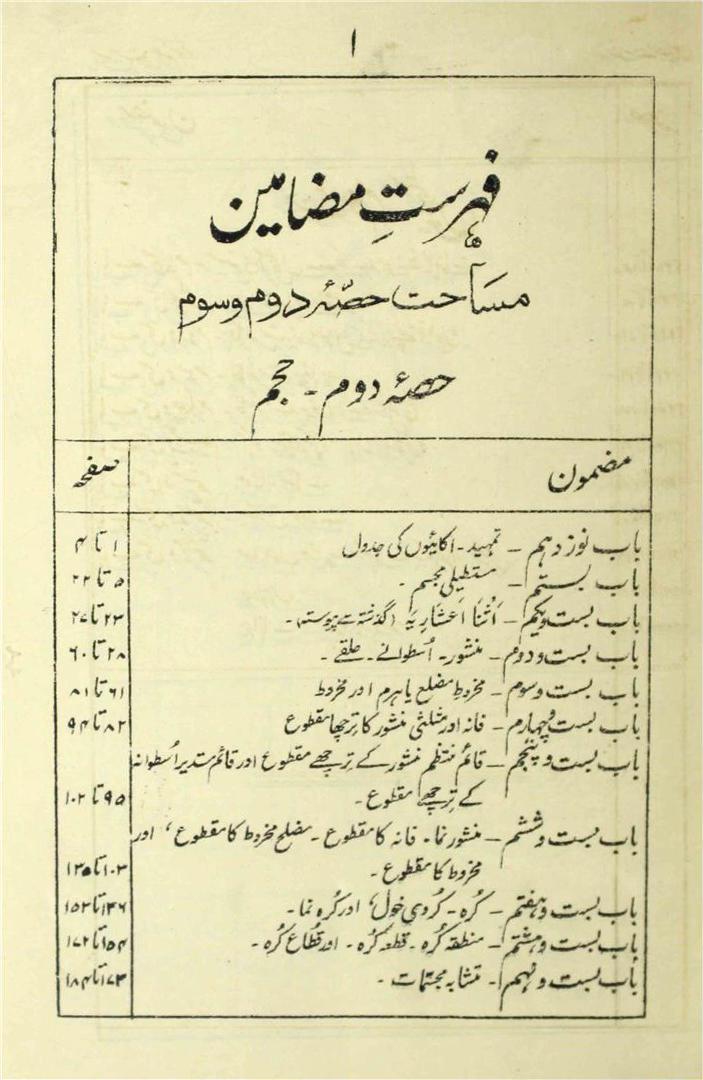 ۱
فہرستِ مضامین
مساحت حصّۂ دوم و سوم
حصّۂ دوم - حجم
مضمون صفحہ
باب نوزدہم - تمہید - اکائیوں کی جدول ۱ تا ۴
باب بستم - مستطیلی مجسم - ۵ تا ۲۲
باب بست و یکم - اَثْنَا اَعشَارِیَہ (گذشتہ سے پیوستہ) - ۲۳ تا ۲۷
باب بست و دوم - منشور - اُسطوانے - حلقے - ۲۸ تا ۶۰
باب بست و سوم - مخروطِ مضلع یا ہرم اور مخروط ۶۱ تا ۸۱
باب بست و چہارم - فانہ اور مثلثی منشور کا ترچھا مقطوع ۸۲ تا ۹۴
باب بست و پنجم - قائم منتظم منشور کے ترچھے مقطوع اور قائم مستدیر اُسطوانہ
کے ترچھے مقطوع - ۹۵ تا ۱۰۲
باب بست و ششم - منشور نما - فانہ کا مقطوع - مضلع مخروط کا مقطوع، اور
مخروط کا مقطوع - ۱۰۳ تا ۱۳۵
باب بست و ہفتم - کُرہ - کُروی خول، اور کُرہ نما - ۱۳۶ تا ۱۵۳
باب بست و ہشتم - منطقہ کُرہ - قطعہ کُرہ - اور قُطاع کُرہ - ۱۵۴ تا ۱۷۲
باب بست و نہم - متشابہ مجسمات - ۱۷۳ تا ۱۸۴